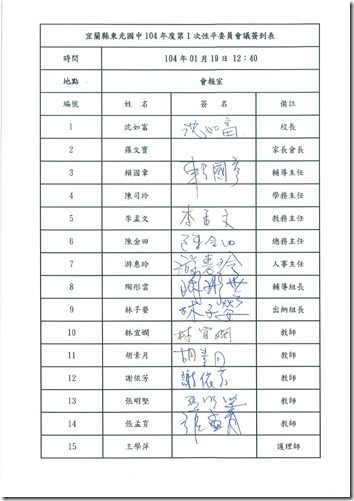 宜蘭縣東光國中 104 年度第 1 次性平委員會議簽到表
時間 104 年 01 月 19 日 12：40
地點 會報室
編號 姓 名 簽 名 備註
1 沈如富 沈如富 校長
2 羅文寶 家長會長
3 賴國章 輔導主任
4 陳司玲 學務主任
5 李孟文 李孟文 教務主任
6 陳金田 陳金田 總務主任
7 游惠玲 游惠玲 人事主任
8 陶彤雲 輔導組長
9 林子馨 林子馨 出納組長
10 林宜嫻 林宜嫻 教師
11 胡素月 胡素月 教師
12 謝依芳 謝依芳 教師
13 張明堅 教師
14 張孟育 教師
15 王學萍 護理師